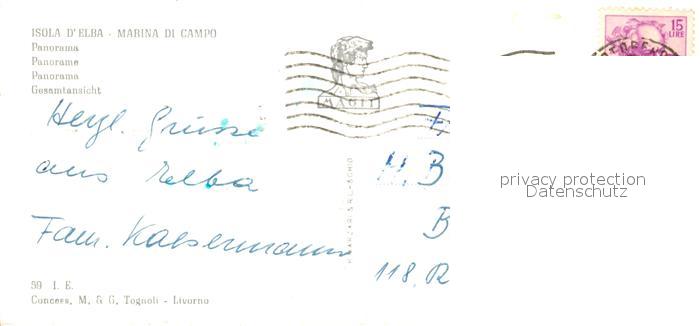 ISOLA D'ELBA - MARINA DI CAMPO
Panorama
Panorame
Panorama
Gesamtansicht
15
LIRE
MAGIT
Herzl. Grüsse
aus Elba
Fam. Kaisermann
H
B
B
118. R
privacy protection
Datenschutz
59 I. E.
Concess. M. & G. Tognoli - Livorno